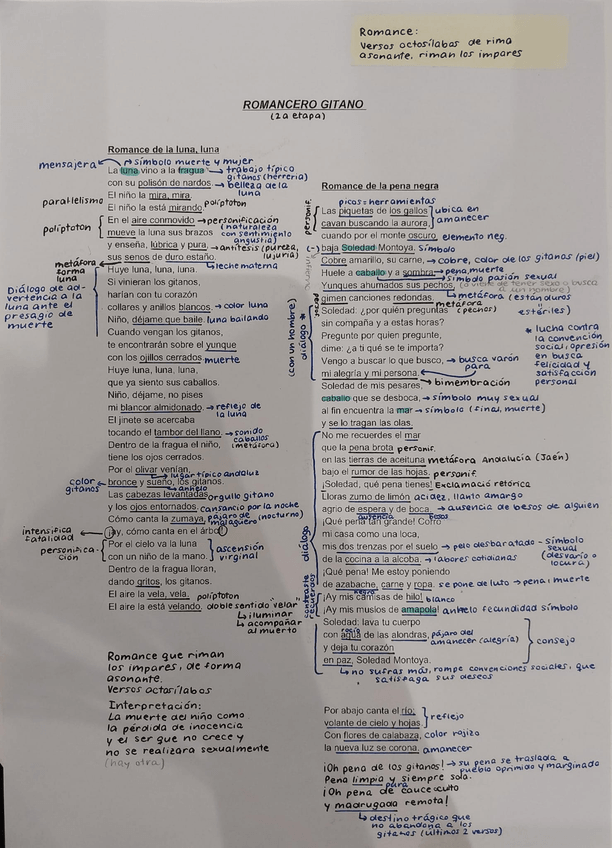 Romance:
Versos octosílabos de rima
asonante, riman los impares
ROMANCERO GITANO
(2a etapa)
Romance de la luna, luna
mensajera
símbolo muerte y mujer
La luna vino a la fragua → trabajo típico
gitanos (herrería)
con su polisón de nardos. → belleza de la
luna
El niño la mira, mira.
paralelismo
políptoton
El niño la está mirando.
En el aire conmovido → personificación
(naturaleza
con sentimiento
angustia)
políptoton
mueve la luna sus brazos
y enseña, lúbrica y pura, → antítesis (pureza,
lujuria)
sus senos de duro estaño.
→ leche materna
metáfora
forma
luna
Huye luna, luna, luna.
Si vinieran los gitanos,
Diálogo de ad-
vertencia a la
luna ante el
presagio de
muerte
harían con tu corazón
collares y anillos blancos. → color luna
Niño, déjame que baile. luna bailando
Cuando vengan los gitanos,
te encontrarán sobre el yunque
con los ojillos cerrados. muerte
Huye luna, luna, luna,
que ya siento sus caballos.
Niño, déjame, no pises
mi blancor almidonado. → reflejo de
la luna
El jinete se acercaba
tocando el tambor del llano. → sonido
caballos
(metáfora)
Dentro de la fragua el niño,
tiene los ojos cerrados.
Por el olivar venían,
→ lugar típico andaluz
color
gitanos
bronce y sueño, los gitanos.
→ anhelo
Las cabezas levantadas orgullo gitano
y los ojos entornados. cansancio por la noche
Cómo canta la zumaya, pájaro de
malagüero (nocturno)
intensifica
fatalidad
¡ay, cómo canta en el árbol!
personifica-
ción
Por el cielo va la luna
con un niño de la mano.
ascensión
virginal
Dentro de la fragua lloran,
dando gritos, los gitanos.
El aire la vela, vela. políptoton
El aire la está velando. doble sentido "velar"
→ iluminar
→ acompañar
al muerto
Romance que riman
los impares, de forma
asonante.
Versos octosílabos
Interpretación:
La muerte del niño como
la pérdida de inocencia
y el ser que no crece y
no se realizará sexualmente
(hay otra)
Romance de la pena negra
picos: herramientas
personif.
Las piquetas de los gallos
cavan buscando la aurora,
ubica en
amanecer
cuando por el monte oscuro, elemento neg.
(-)
baja Soledad Montoya. símbolo
Cobre amarillo, su carne, → cobre, color de los gitanos (piel)
Huele a caballo y a sombra → pena, muerte
→ símbolo pasión sexual
Yunques ahumados sus pechos,
gimen canciones redondas. → metáfora (están duros
metáfora
(pechos)
estériles)
Soledad: ¿por quién preguntas
sin compaña y a estas horas?
diálogo *
(con un hombre)
Pregunte por quien pregunte,
dime: ¿a ti qué se te importa?
* lucha contra
la convención
social, opresión
en busca
felicidad y
satisfacción
personal
Vengo a buscar lo que busco, → busca varón
para
mi alegría y mi persona.
→ bimembración
Soledad de mis pesares,
caballo que se desboca, → símbolo muy sexual
al fin encuentra la mar → símbolo (final, muerte)
y se lo tragan las olas.
No me recuerdes el mar
que la pena brota personif.
en las tierras de aceituna metáfora Andalucía (Jaén)
bajo el rumor de las hojas. personif.
¡Soledad, qué pena tienes! Exclamació retórica
Lloras zumo de limón acidez, llanto amargo
agrio de espera y de boca. → ausencia de besos de alguien
ausencia besos
¡Qué pena tan grande! Corro
diálogo
mi casa como una loca,
mis dos trenzas por el suelo → pelo desbaratado - símbolo
sexual
(desvarío o
locura)
de la cocina a la alcoba. → labores cotidianas
¡Qué pena! Me estoy poniendo
de azabache, carne y ropa. se pone de luto → pena, muerte
negro
contraste
recuerdos
¡Ay mis camisas de hilo! blanco
¡Ay mis muslos de amapola! anhelo fecundidad símbolo
Soledad: lava tu cuerpo
rocío
con agua de las alondras, pájaro del
amanecer (alegría)
consejo
y deja tu corazón
en paz, Soledad Montoya.
→ no sufras más, rompe convenciones sociales, que
satisfaga sus deseos
Por abajo canta el río:
volante de cielo y hojas.
reflejo
Con flores de calabaza, color rojizo
la nueva luz se corona. amanecer
¡Oh pena de los gitanos! → su pena se traslada a
pueblo oprimido y marginado
Pena limpia y siempre sola.
pura
¡Oh pena de cauce oculto
y madrugada remota!
→ destino trágico que
no abandona a los
gitanos (últimos 2 versos)